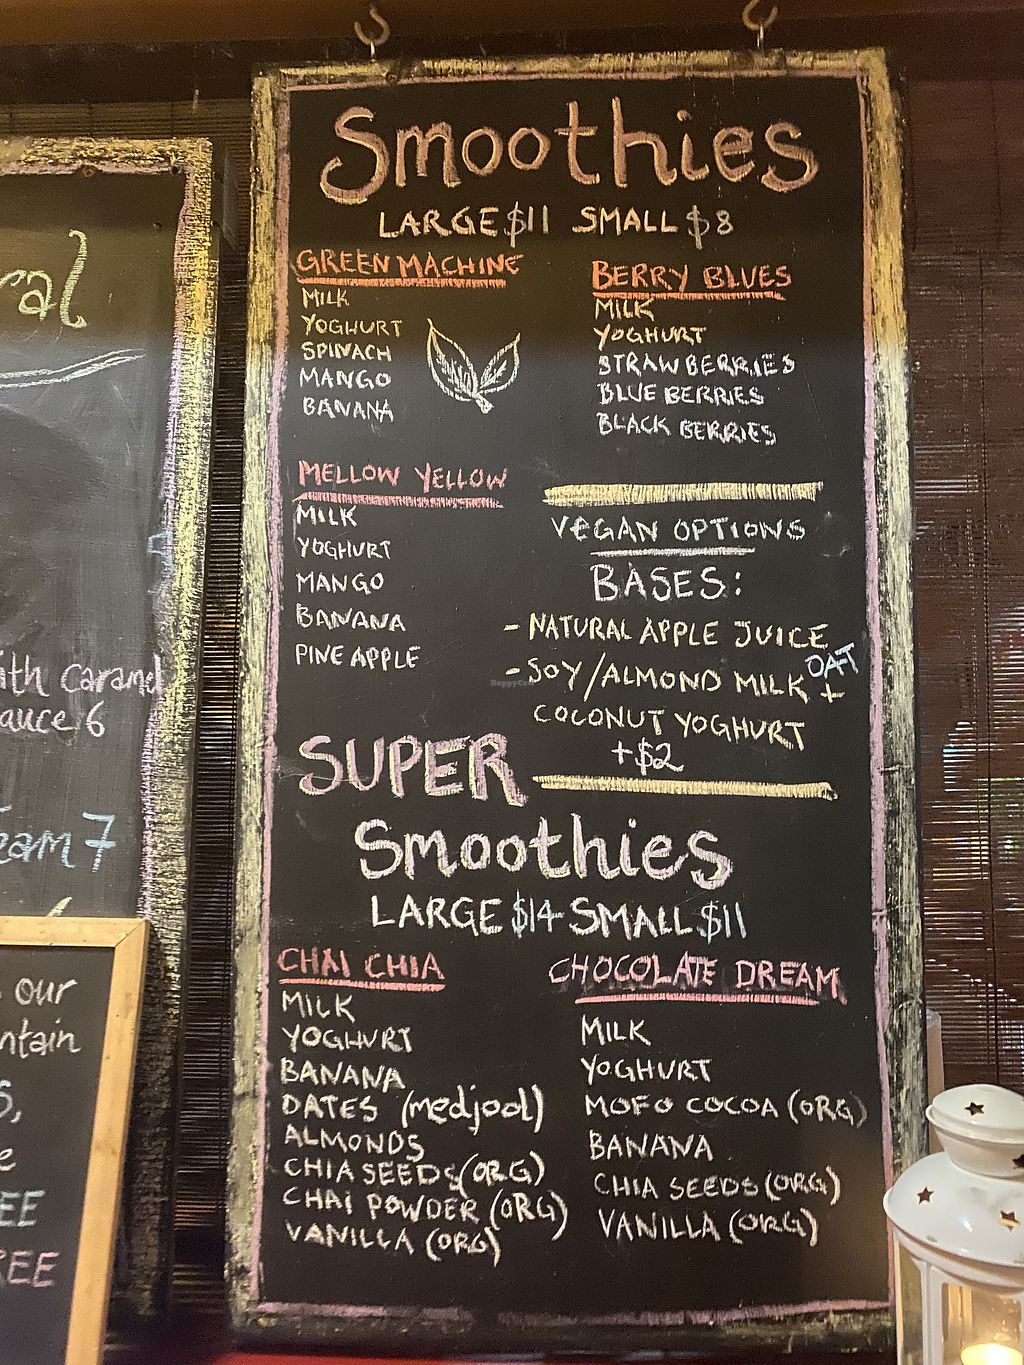 Smoothies
LARGE $11 SMALL $8
GREEN MACHINE
MILK
YOGHURT
SPINACH
MANGO
BANANA
BERRY BLUES
MILK
YOGHURT
STRAWBERRIES
BLUE BERRIES
BLACK BERRIES
MELLOW YELLOW
MILK
YOGHURT
MANGO
BANANA
PINE APPLE
VEGAN OPTIONS
BASES:
- NATURAL APPLE JUICE
- SOY/ALMOND MILK OAT +
COCONUT YOGHURT
+$2
SUPER
Smoothies
LARGE $14 SMALL $11
CHAI CHIA
MILK
YOGHURT
BANANA
DATES (medjool)
ALMONDS
CHIA SEEDS (ORG)
CHAI POWDER (ORG)
VANILLA (ORG)
CHOCOLATE DREAM
MILK
YOGHURT
MOFO COCOA (ORG)
BANANA
CHIA SEEDS (ORG)
VANILLA (ORG)
ral
ith caramel
auce 6
eam 7
our
ntain
S,
e
EE
REE
HappyCow